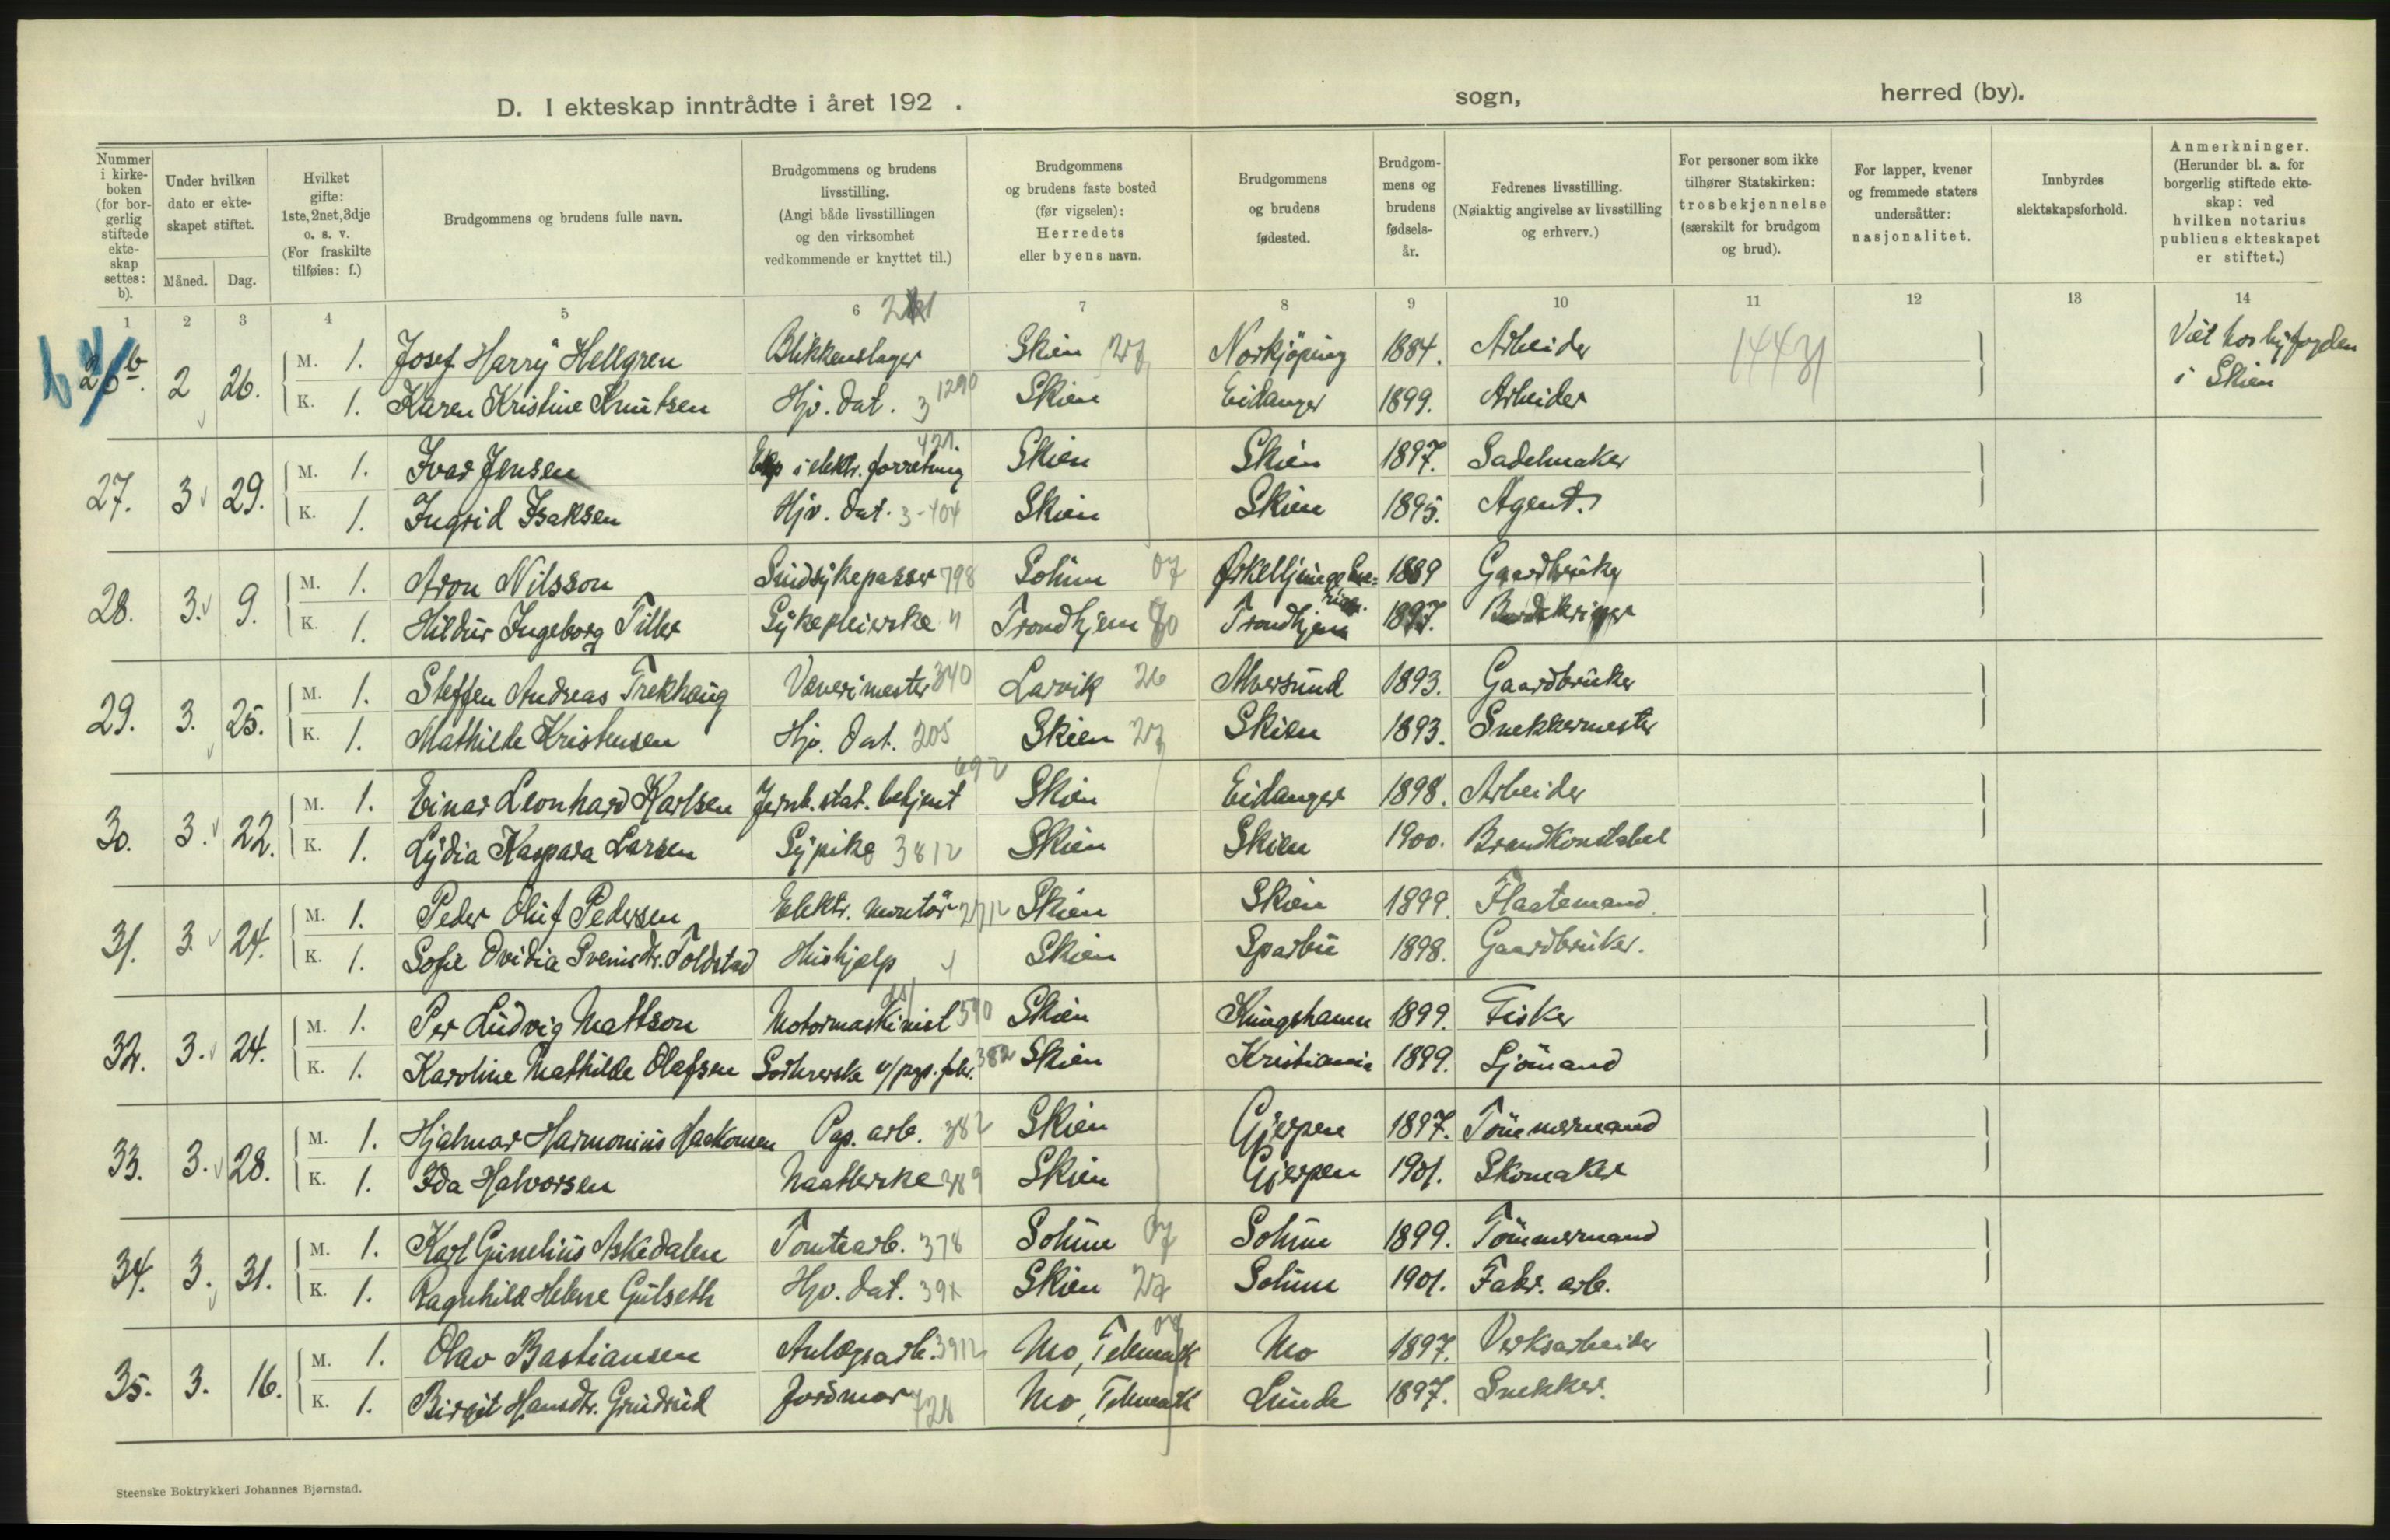 D. I ekteskap inntrådte i året 192 .
sogn,
herred (by).
Nummer i kirkeboken (for borgerlig stiftede ekteskap settes: b).
Under hvilken dato er ekteskapet stiftet.
Måned.
Dag.
Hvilket gifte: 1ste, 2net, 3dje o. s. v. (For fraskilte tilføies: f.)
Brudgommens og brudens fulle navn.
Brudgommens og brudens livsstilling. (Angi både livsstillingen og den virksomhet vedkommende er knyttet til.)
Brudgommens og brudens faste bosted (før vigselen): Herredets eller byens navn.
Brudgommens og brudens fødested.
Brudgommens og brudens fødselsår.
Fedrenes livsstilling. (Nøiaktig angivelse av livsstilling og erhverv.)
For personer som ikke tilhører Statskirken: trosbekjennelse (særskilt for brudgom og brud).
For lapper, kvener og fremmede staters undersåtter: nasjonalitet.
Innbyrdes slektskapsforhold.
Anmerkninger. (Herunder bl. a. for borgerlig stiftede ekteskap: ved hvilken notarius publicus ekteskapet er stiftet.)
1 2 3 4 5 6 7 8 9 10 11 12 13 14
26 b. 2 26. M. 1. Josef Harry Hellgren Blikkenslager Skien 27 Norkjöping 1884. Arbeider Viet hos byfogden
K. 1. Karen Kristine Knutsen Hjv. dat. 3 1290 Skien Eidanger 1899. Arbeider i Skien
27. 3 29. M. 1. Ivar Jensen Eksp i elektr. forretning 421. Skien Skien 1897. Sadelmaker
K. 1. Ingrid Isaksen Hjv. dat. 3-404 Skien Skien 1895. Agent.
28. 3. 9. M. 1. Aron Nilsson Sindsykepasser 798 Solum 07 1889 Gaardbruker
K. 1. Hildur Ingeborg Tiller Sykepleierske " Trondhjem 80 Trondhjem 1897.
29. 3. 25. M. 1. Steffen Andreas Trekhaug Væverimester 340 Larvik 26 Alversund 1893. Gaardbruker
K. 1. Mathilde Kristensen Hjv. dat. 205 Skien 27 Skien 1893. Snekkermester
30. 3. 22. M. 1. Einar Leonhard Karlsen Jernb. stat. betjent 692 Skien Eidanger 1898. Arbeider
K. 1. Lydia Kaspara Larsen Sypike 3812 Skien Skien 1900. Brandkonstabel
31. 3. 24. M. 1. Peder Oluf Pedersen Elektr. montör 2712 Skien Skien 1899. Flaatemand.
K. 1. Sofie Ovidia Svensdtr. Toldstad Hushjelp Skien Sparbu 1898. Gaardbruker.
32. 3. 24. M. 1. Per Ludvig Mattson Motormaskinist 590 Skien Kungshamn 1899. Fisker
K. 1. Karoline Mathilde Olafsen Sorterske v/pap. fabr. 382 Skien Kristiania 1899. Sjömand
33. 3. 28. M. 1. Hjalmar Harmonius Haakonsen Pap. arb. 382 Skien Gjerpen 1897. Tömmermand
K. 1. Ida Halvorsen Naatlerske 389 Skien Gjerpen 1901. Skomaker
34. 3. 31. M. 1. Karl Gunelius Askedalen Tomtearb. 378 Solum 07 Solum 1899. Tömmermand
K. 1. Ragnhild Helene Gulseth Hjv. dat. Skien 27 Solum 1901. Fabr. arb.
35. 3. 16. M. 1. Olav Bastiansen Anlægsarb. 3912 Mo, Telemark Mo 1897. Verksarbeider
K. 1. Birgit Hansdtr. Grudrud Jordmor 728 Mo, Telemark Lunde 1897. Snekker.
Steenske Boktrykkeri Johannes Bjørnstad.